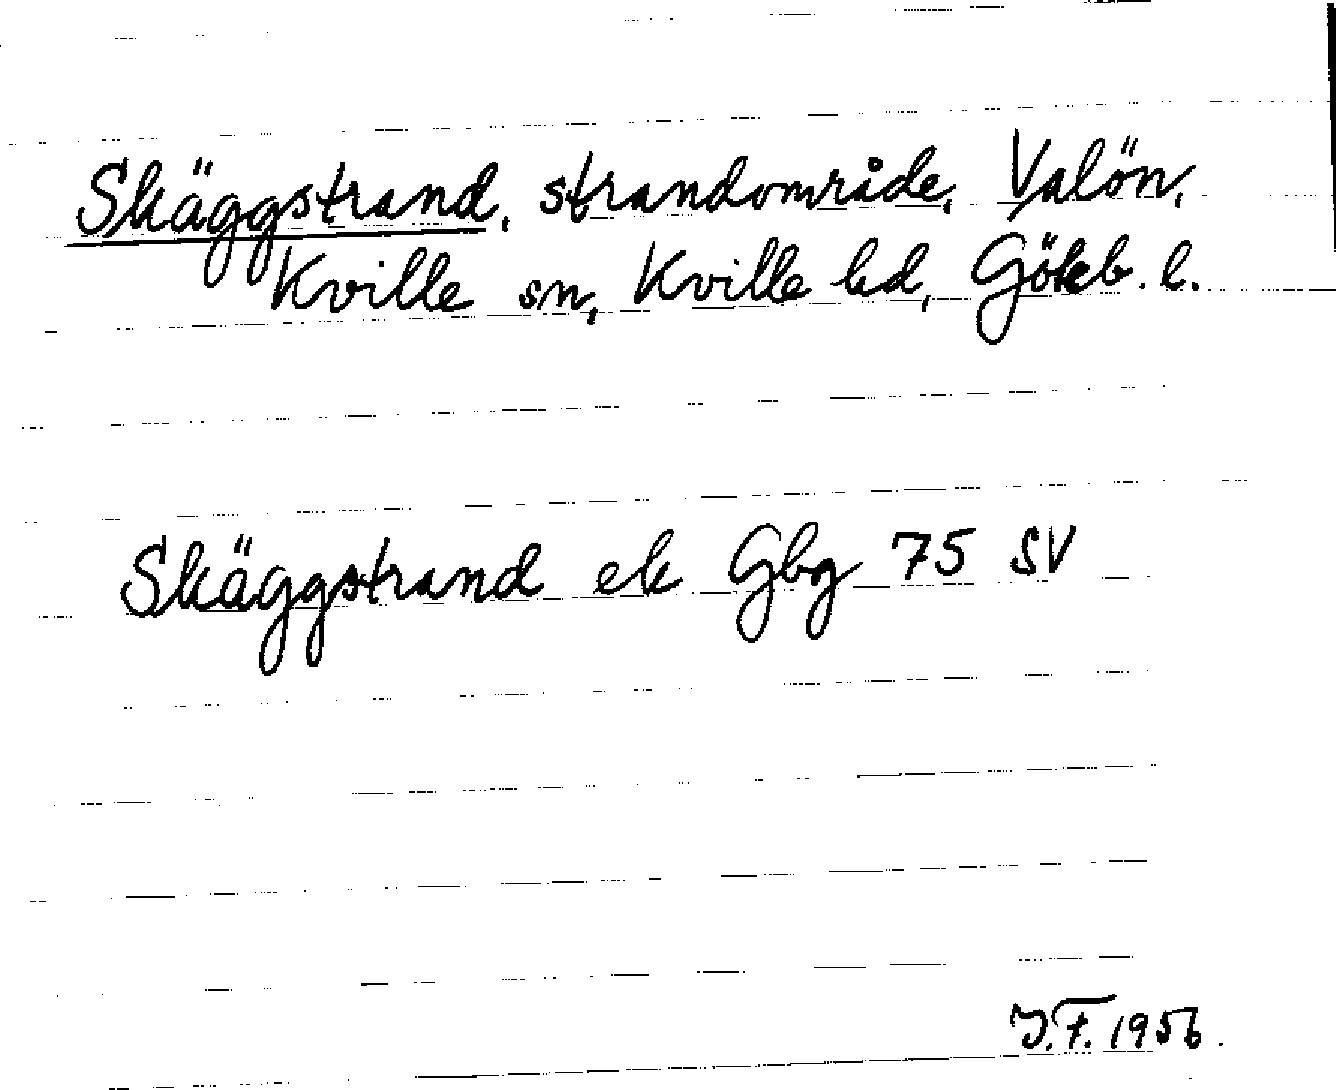 Skäggstrand, strandområde, Valön,
Kville sn, Kville hd, Göteb. l.
Skäggstrand ek Gbg 75 SV
J.F. 1956.